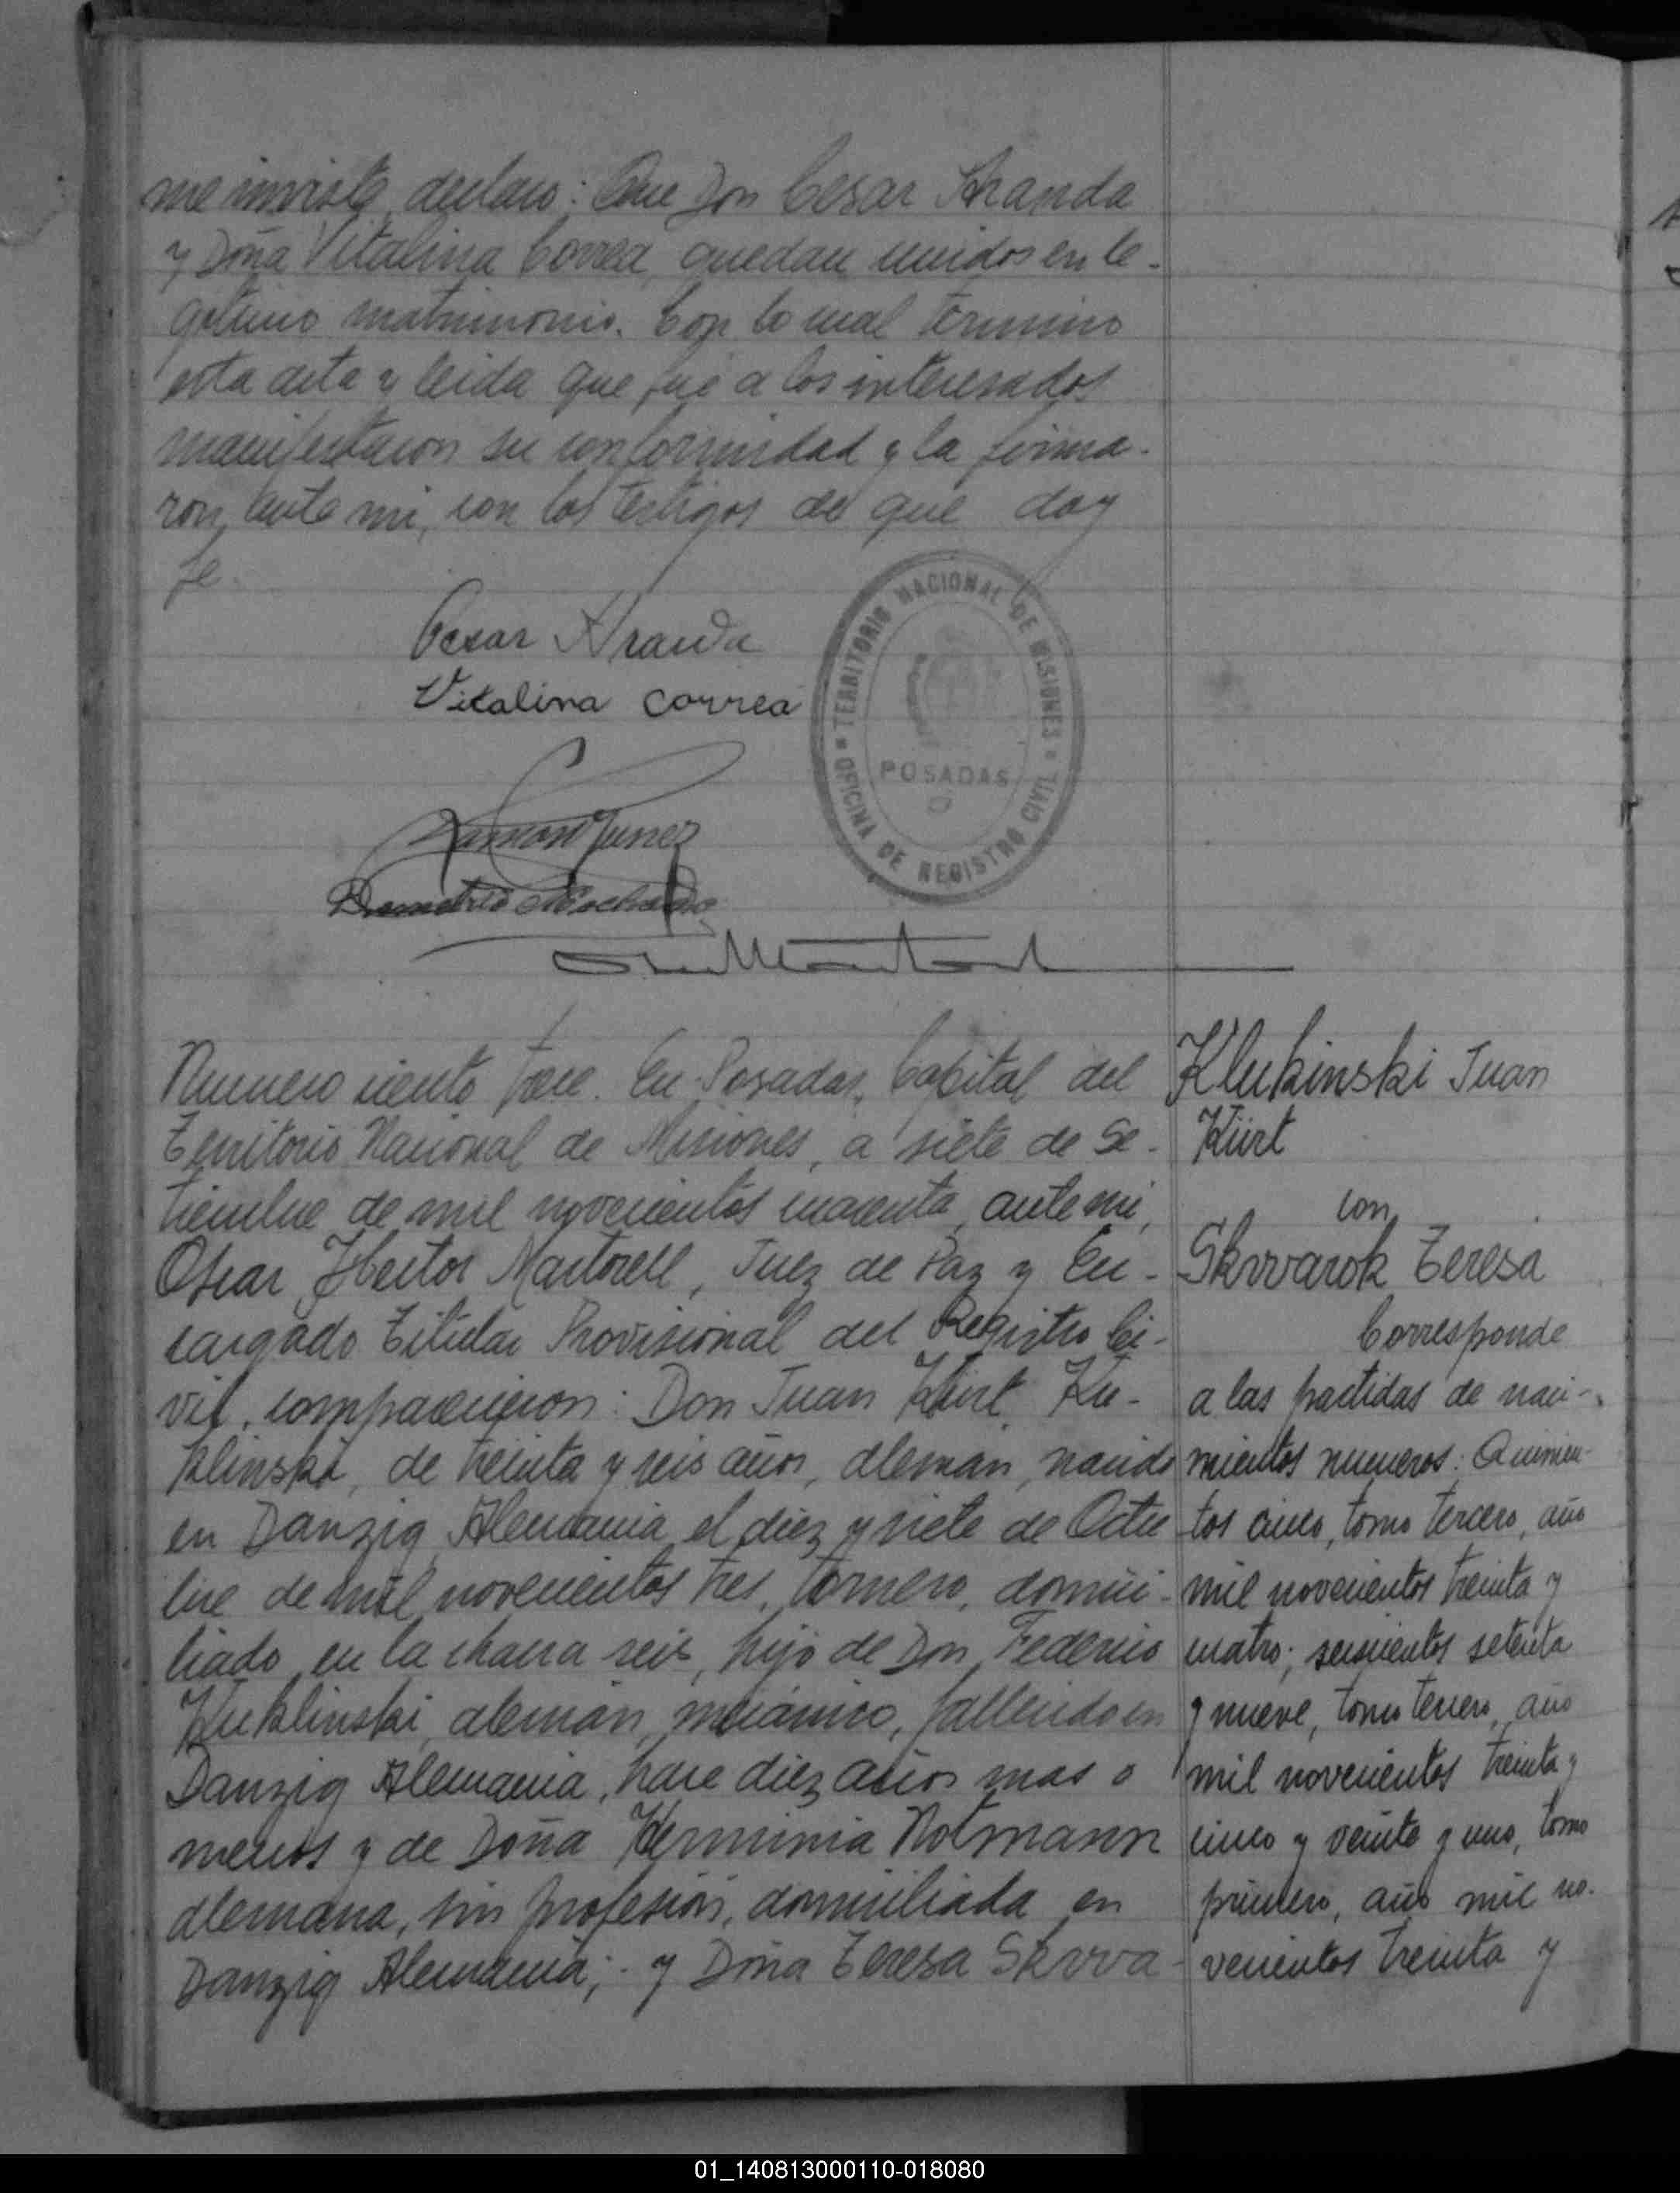 me inviste declaro: Que Don Cesar Aranda
y Doña Vitalina Correa, quedan unidos en le-
gitimo matrimonio. Con lo cual termino
esta acta y leida que fué a los interesados
manifestaron su conformidad y la firma-
ron ante mi, con los testigos de que doy
fe.
Cesar Aranda
Vitalina Correa
TERRITORIO NACIONAL DE MISIONES
POSADAS
OFICINA DE REGISTRO CIVIL
Demetrio Machado
Numero ciento trece. En Posadas, Capital del
Territorio Nacional de Misiones, a siete de Se-
tiembre de mil novecientos cuarenta, ante mi,
Oscar Hector Martorell, Juez de Paz y En-
cargado Titular Provisional del Registro Ci-
vil, comparecieron: Don Juan Kürt Ku-
klinski, de treinta y seis años, alemán, nacido
en Danzig Alemania el diez y siete de Octu
bre de mil novecientos tres, tornero, domici-
liado en la chacra seis, hijo de Don Federico
Kuklinski, alemán, mecánico, fallecido en
Danzig Alemania, hace diez años mas o
menos y de Doña Herminia Notmann
alemana, sin profesión, domiciliada en
Danzig Alemania; y Doña Teresa Skrva-
Klukinski Juan
Kürt
con
Skrvarok Teresa
Corresponde
a las partidas de naci-
mientos numeros: Quinien-
tos cinco, tomo tercero, año
mil novecientos treinta y
cuatro; seiscientos setenta
y nueve, tomo tercero, año
mil novecientos treinta y
cinco y veinte y uno, tomo
primero, año mil no-
vecientos treinta y
01_140813000110-018080